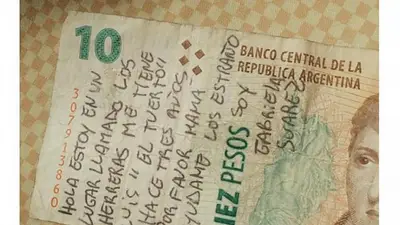 10
BANCO CENTRAL DE LA
REPUBLICA ARGENTINA
307913860
HOLA ESTOY EN UN
LUGAR LLAMADO LOS
HERRERAS ME TIENE
LUIS "EL TUERTO"
HACE TRES AÑOS
POR FAVOR MAMA
AYUDAME LOS ESTRAÑO
SOY
GABRIELA
SUAREZ
IEZ PESOS